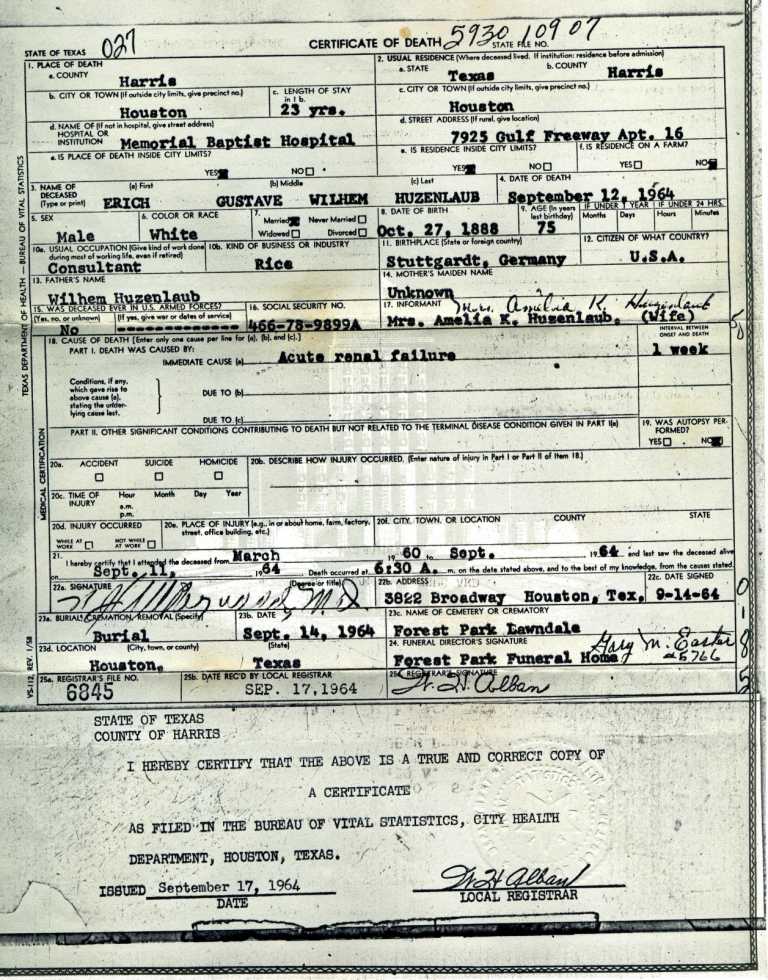 STATE OF TEXAS 027 CERTIFICATE OF DEATH 5930 10907
STATE FILE NO.
1. PLACE OF DEATH
a. COUNTY Harris
2. USUAL RESIDENCE (Where deceased lived. If institution: residence before admission)
a. STATE Texas b. COUNTY Harris
b. CITY OR TOWN (If outside city limits, give precinct no.) Houston
c. LENGTH OF STAY in 1 b. 23 yrs.
c. CITY OR TOWN (If outside city limits, give precinct no.) Houston
d. NAME OF (If not in hospital, give street address) HOSPITAL OR INSTITUTION Memorial Baptist Hospital
d. STREET ADDRESS (If rural, give location) 7925 Gulf Freeway Apt. 16
e. IS PLACE OF DEATH INSIDE CITY LIMITS? YES NO
e. IS RESIDENCE INSIDE CITY LIMITS? YES NO
f. IS RESIDENCE ON A FARM? YES NO
3. NAME OF DECEASED (Type or print)
(a) First ERICH (b) Middle GUSTAVE WILHEM (c) Last HUZENLAUB
4. DATE OF DEATH September 12, 1964
5. SEX Male
6. COLOR OR RACE White
7. Married Never Married Widowed Divorced
8. DATE OF BIRTH Oct. 27, 1888
9. AGE (In years last birthday) 75
IF UNDER 1 YEAR Months Days
IF UNDER 24 HRS. Hours Minutes
10a. USUAL OCCUPATION (Give kind of work done during most of working life, even if retired) Consultant
10b. KIND OF BUSINESS OR INDUSTRY Rice
11. BIRTHPLACE (State or foreign country) Stuttgardt, Germany
12. CITIZEN OF WHAT COUNTRY? U.S.A.
13. FATHER'S NAME Wilhem Huzenlaub
14. MOTHER'S MAIDEN NAME Unknown
15. WAS DECEASED EVER IN U.S. ARMED FORCES?
(Yes, no, or unknown) No (If yes, give war or dates of service)
16. SOCIAL SECURITY NO. 466-78-9899A
17. INFORMANT Mrs. Amelia K. Huzenlaub
Mrs. Amelia K. Huzenlaub. (Wife)
18. CAUSE OF DEATH [Enter only one cause per line for (a), (b), and (c).]
INTERVAL BETWEEN ONSET AND DEATH
PART I. DEATH WAS CAUSED BY:
IMMEDIATE CAUSE (a) Acute renal failure 1 week
Conditions, if any, which gave rise to above cause (a), stating the underlying cause last.
DUE TO (b)
DUE TO (c)
PART II. OTHER SIGNIFICANT CONDITIONS CONTRIBUTING TO DEATH BUT NOT RELATED TO THE TERMINAL DISEASE CONDITION GIVEN IN PART I(a)
19. WAS AUTOPSY PERFORMED? YES NO
20a. ACCIDENT SUICIDE HOMICIDE
20b. DESCRIBE HOW INJURY OCCURRED. (Enter nature of injury in Part I or Part II of item 18.)
20c. TIME OF INJURY Hour Month Day Year
a.m.
p.m.
20d. INJURY OCCURRED
WHILE AT WORK NOT WHILE AT WORK
20e. PLACE OF INJURY (e.g., in or about home, farm, factory, street, office building, etc.)
20f. CITY, TOWN, OR LOCATION COUNTY STATE
21. I hereby certify that I attended the deceased from March 1960 to Sept. 1964 and last saw the deceased alive
on Sept. 11, 1964 Death occurred at 6:30 A. m. on the date stated above, and to the best of my knowledge, from the causes stated.
22a. SIGNATURE (Degree or title) M.D.
22b. ADDRESS 3822 Broadway Houston, Tex.
22c. DATE SIGNED 9-14-64
23a. BURIAL, CREMATION, REMOVAL (Specify) Burial
23b. DATE Sept. 14, 1964
23c. NAME OF CEMETERY OR CREMATORY Forest Park Lawndale
23d. LOCATION (City, town, or county) (State) Houston, Texas
24. FUNERAL DIRECTOR'S SIGNATURE Gary M. Easter #5766
Forest Park Funeral Home
25a. REGISTRAR'S FILE NO. 6845
25b. DATE REC'D BY LOCAL REGISTRAR SEP. 17, 1964
25c. REGISTRAR'S SIGNATURE W. H. Alban
TEXAS DEPARTMENT OF HEALTH — BUREAU OF VITAL STATISTICS
MEDICAL CERTIFICATION
VS-112, REV. 1/58
0185
STATE OF TEXAS
COUNTY OF HARRIS
I HEREBY CERTIFY THAT THE ABOVE IS A TRUE AND CORRECT COPY OF
A CERTIFICATE
AS FILED IN THE BUREAU OF VITAL STATISTICS, CITY HEALTH
DEPARTMENT, HOUSTON, TEXAS.
ISSUED September 17, 1964 W. H. Alban
DATE LOCAL REGISTRAR